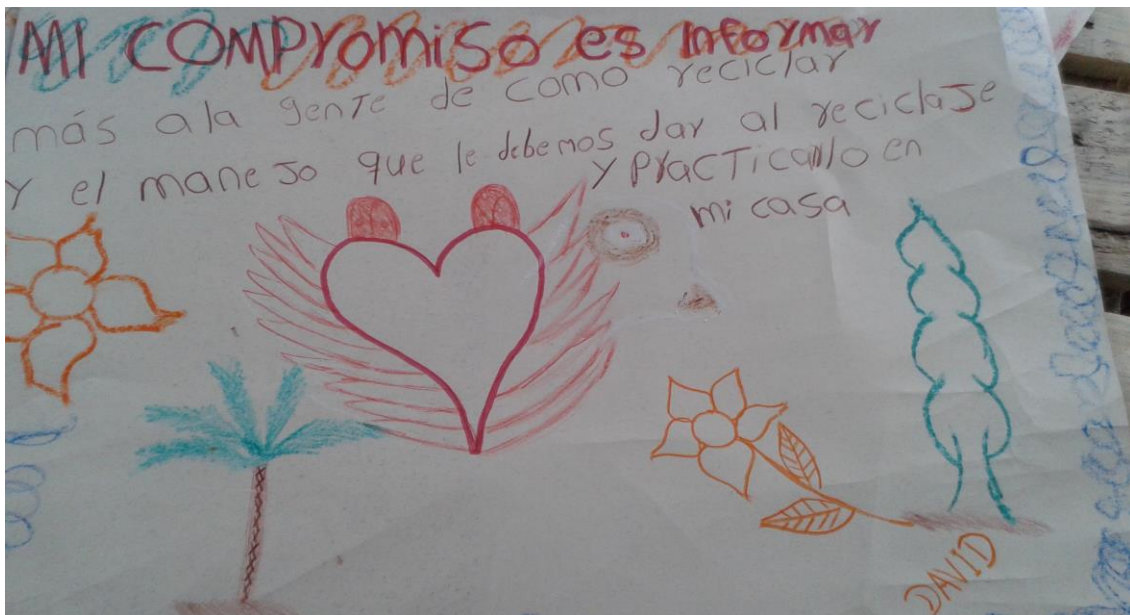 MI COMPYomiso es Informar
más a la gente de como reciclar
y el manejo que le debemos dar al reciclaje
y practicarlo en
mi casa
DAVID